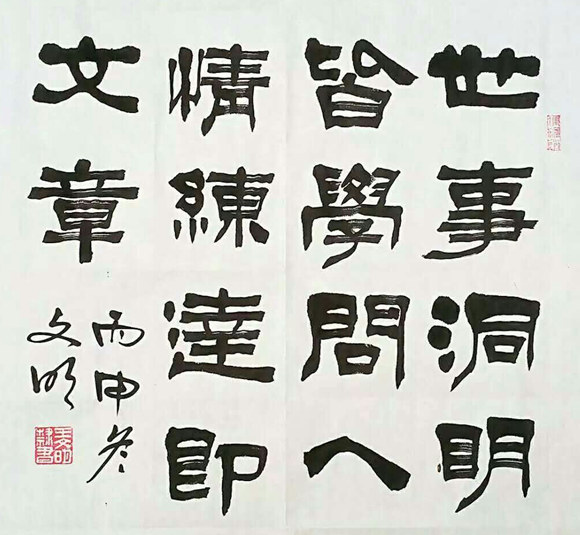 世事洞明
皆學問人
情練達即
文章
丙申冬
文明
文明
隸書